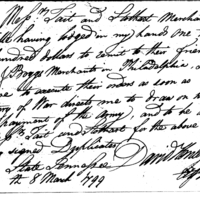 Messrs Tait and Stothart Merchan
ille having lodged in my hands one
hundred dollars to remit to their frien
J Boggs Merchants in Philadelphia, a
me to execute their orders as soon as
y of War directs me to draw on
payment of the Army, and to be a
rs Tait and Stothart for the above
ng signed Duplicates
State Tennessee David
th 8 March 1799